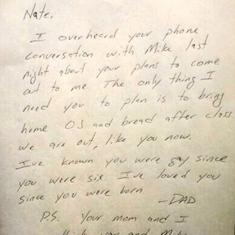 Nate,
I overheard your phone
conversation with Mike last
night about your plans to come
out to me. The only thing I
need you to plan is to bring
home OJ and bread after class.
We are out, like you now.
I've known you were gay since
you were six. I've loved you
since you were born.
-DAD
P.S. Your mom and I
you and Mike